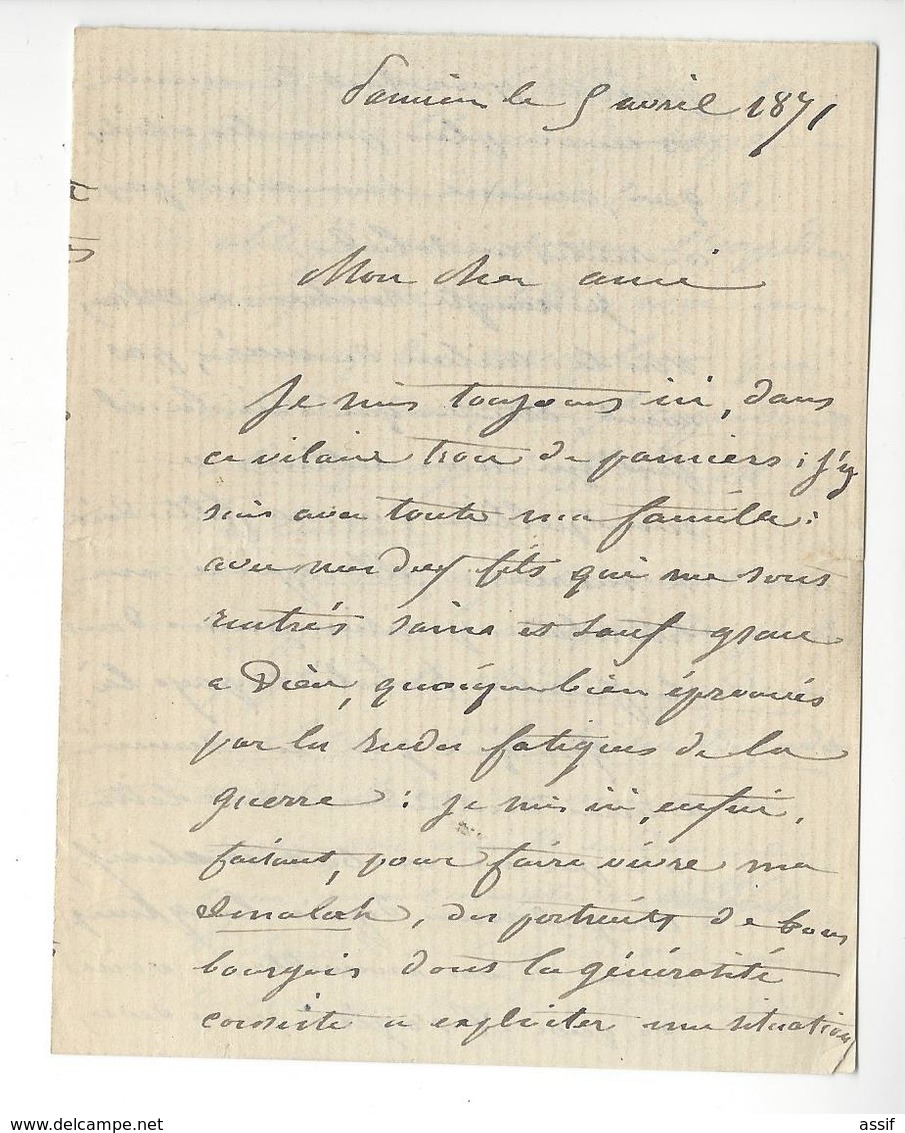 Pamiers le 5 avril 1871
Mon cher ami
Je suis toujours ici, dans
ce vilain trou de pamiers ; j'y
suis avec toute ma famille :
avec mes deux fils qui me sont
rentrés sains et sauf grace
a Dieu, quoique bien éprouvés
par les rudes fatigues de la
guerre : je suis ici, enfin,
faisant, pour faire vivre ma
smalah, des portraits de bons
bourgeois dont la générosité
consiste a exploiter ma situation
delcampe.net
assif